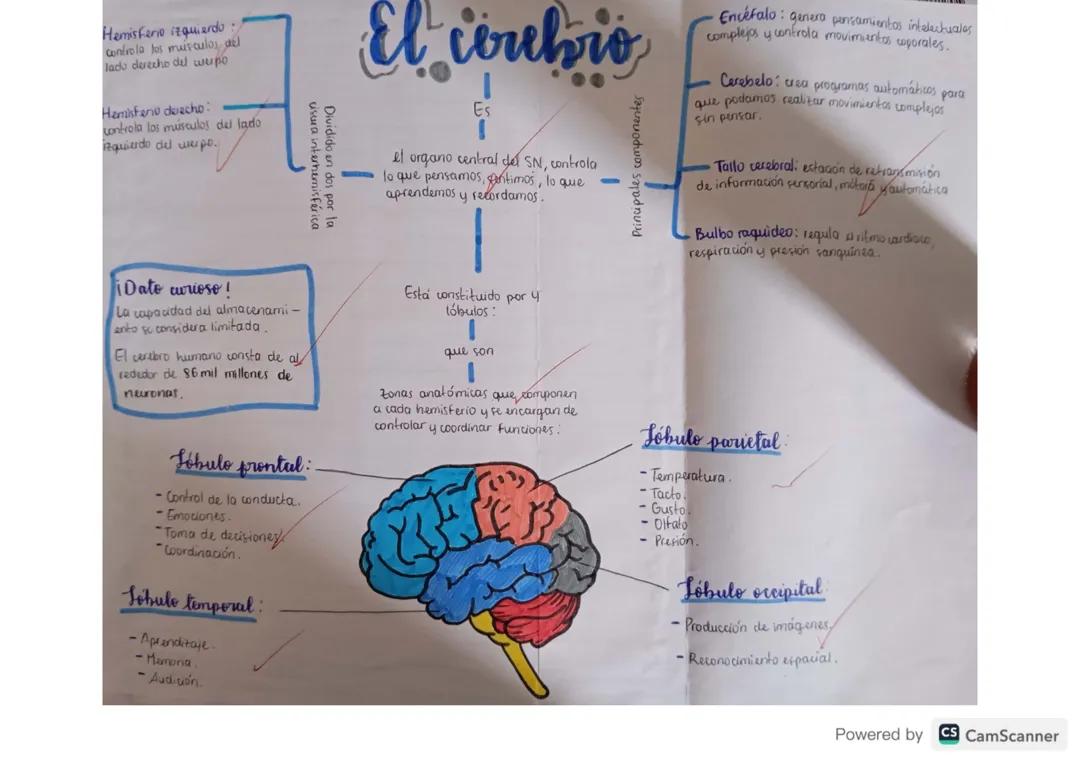 El cerebro
Es
el organo central del SN, controla
lo que pensamos, sentimos, lo que
aprendemos y recordamos.
Dividido en dos por la
cisura interhemisférica
Hemisferio izquierdo:
controla los músculos del
lado derecho del cuerpo
Hemisferio derecho:
controla los músculos del lado
izquierdo del cuerpo.
Principales componentes
Encéfalo: genera pensamientos intelectuales
complejos y controla movimientos coporales.
Cerebelo: crea programas automáticos para
que podamos realizar movimientos complejos
sin pensar.
Tallo cerebral: estación de retransmisión
de información sensorial, motora y automática
Bulbo raquideo: regula el ritmo cardiaco,
respiración y presión sanguínea.
¡Dato curioso!
La capacidad del almacenami-
ento se considera limitada.
El cerebro humano consta de al
rededor de 86 mil millones de
neuronas.
Está constituido por 4
lóbulos:
que son
zonas anatómicas que componen
a cada hemisferio y se encargan de
controlar y coordinar funciones:
Lóbulo frontal:
- Control de la conducta.
- Emociones.
- Toma de decisiones.
- Coordinación.
Lóbulo parietal:
- Temperatura.
- Tacto.
- Gusto.
- Olfato
- Presión.
Lóbulo temporal:
- Aprendizaje.
- Memoria.
- Audición.
Lóbulo occipital:
- Producción de imágenes.
- Reconocimiento espacial.
Powered by CS CamScanner